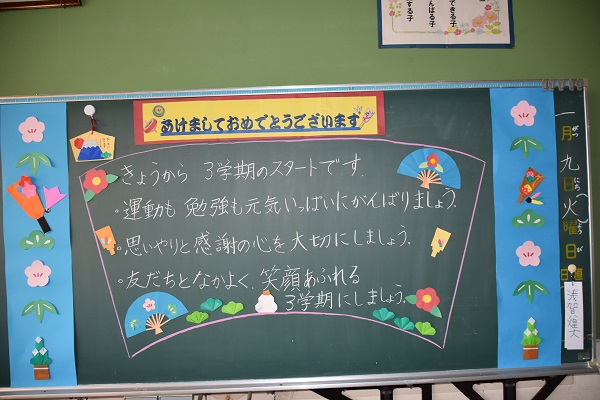 できる子
んばる子
する子
あけましておめでとうございます
きょうから 3学期のスタートです.
・運動も 勉強も元気いっぱいにがんばりましょう.
・思いやりと感謝の心を大切にしましょう.
・友だちとなかよく.笑顔あふれる
3学期にしましょう.
一月九日火曜日
がつ
にち
よう
び
日直